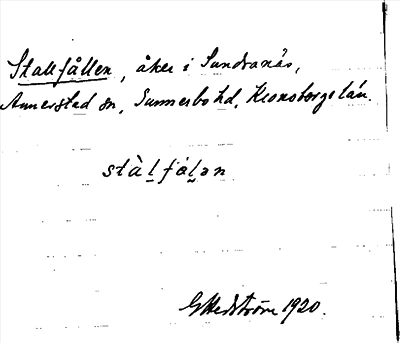 Stallfållen, åker i Sundranäs,
Annerstad sn, Sunnerbo hd, Kronobergs län.
stàl̠fål̠ən
G Hedström 1920.